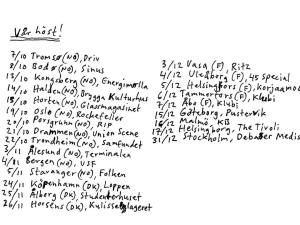 Vår höst!
7/10 Tromsø (NO), Driv
8/10 Bodø (NO), Sinus
13/10 Kongsberg (NO), Energimølla
14/10 Halden (NO), Brygga Kulturhus
18/10 Horten (NO), Glasmagasinet
19/10 Oslo (NO), Rockefeller
20/10 Porsgrunn (NO), RIP
21/10 Drammen (NO), Union Scene
22/10 Trondheim (NO), Samfundet
3/11 Ålesund (NO), Terminalen
4/11 Bergen (NO), USF
5/11 Stavanger (NO), Folken
24/11 Köpenhamn (DK), Loppen
25/11 Ålborg (DK), Studenterhuset
26/11 Horsens (DK), Kulisselageret
3/12 Vasa (F), Ritz
4/12 Uleåborg (F), 45 Special
5/12 Helsingfors (F), Korjaamo
6/12 Tammerfors (F), Klubi
7/12 Åbo (F), Klubi
15/12 Göteborg, Pustervik
16/12 Malmö, KB
17/12 Helsingborg, The Tivoli
31/12 Stockholm, Debaser Medis